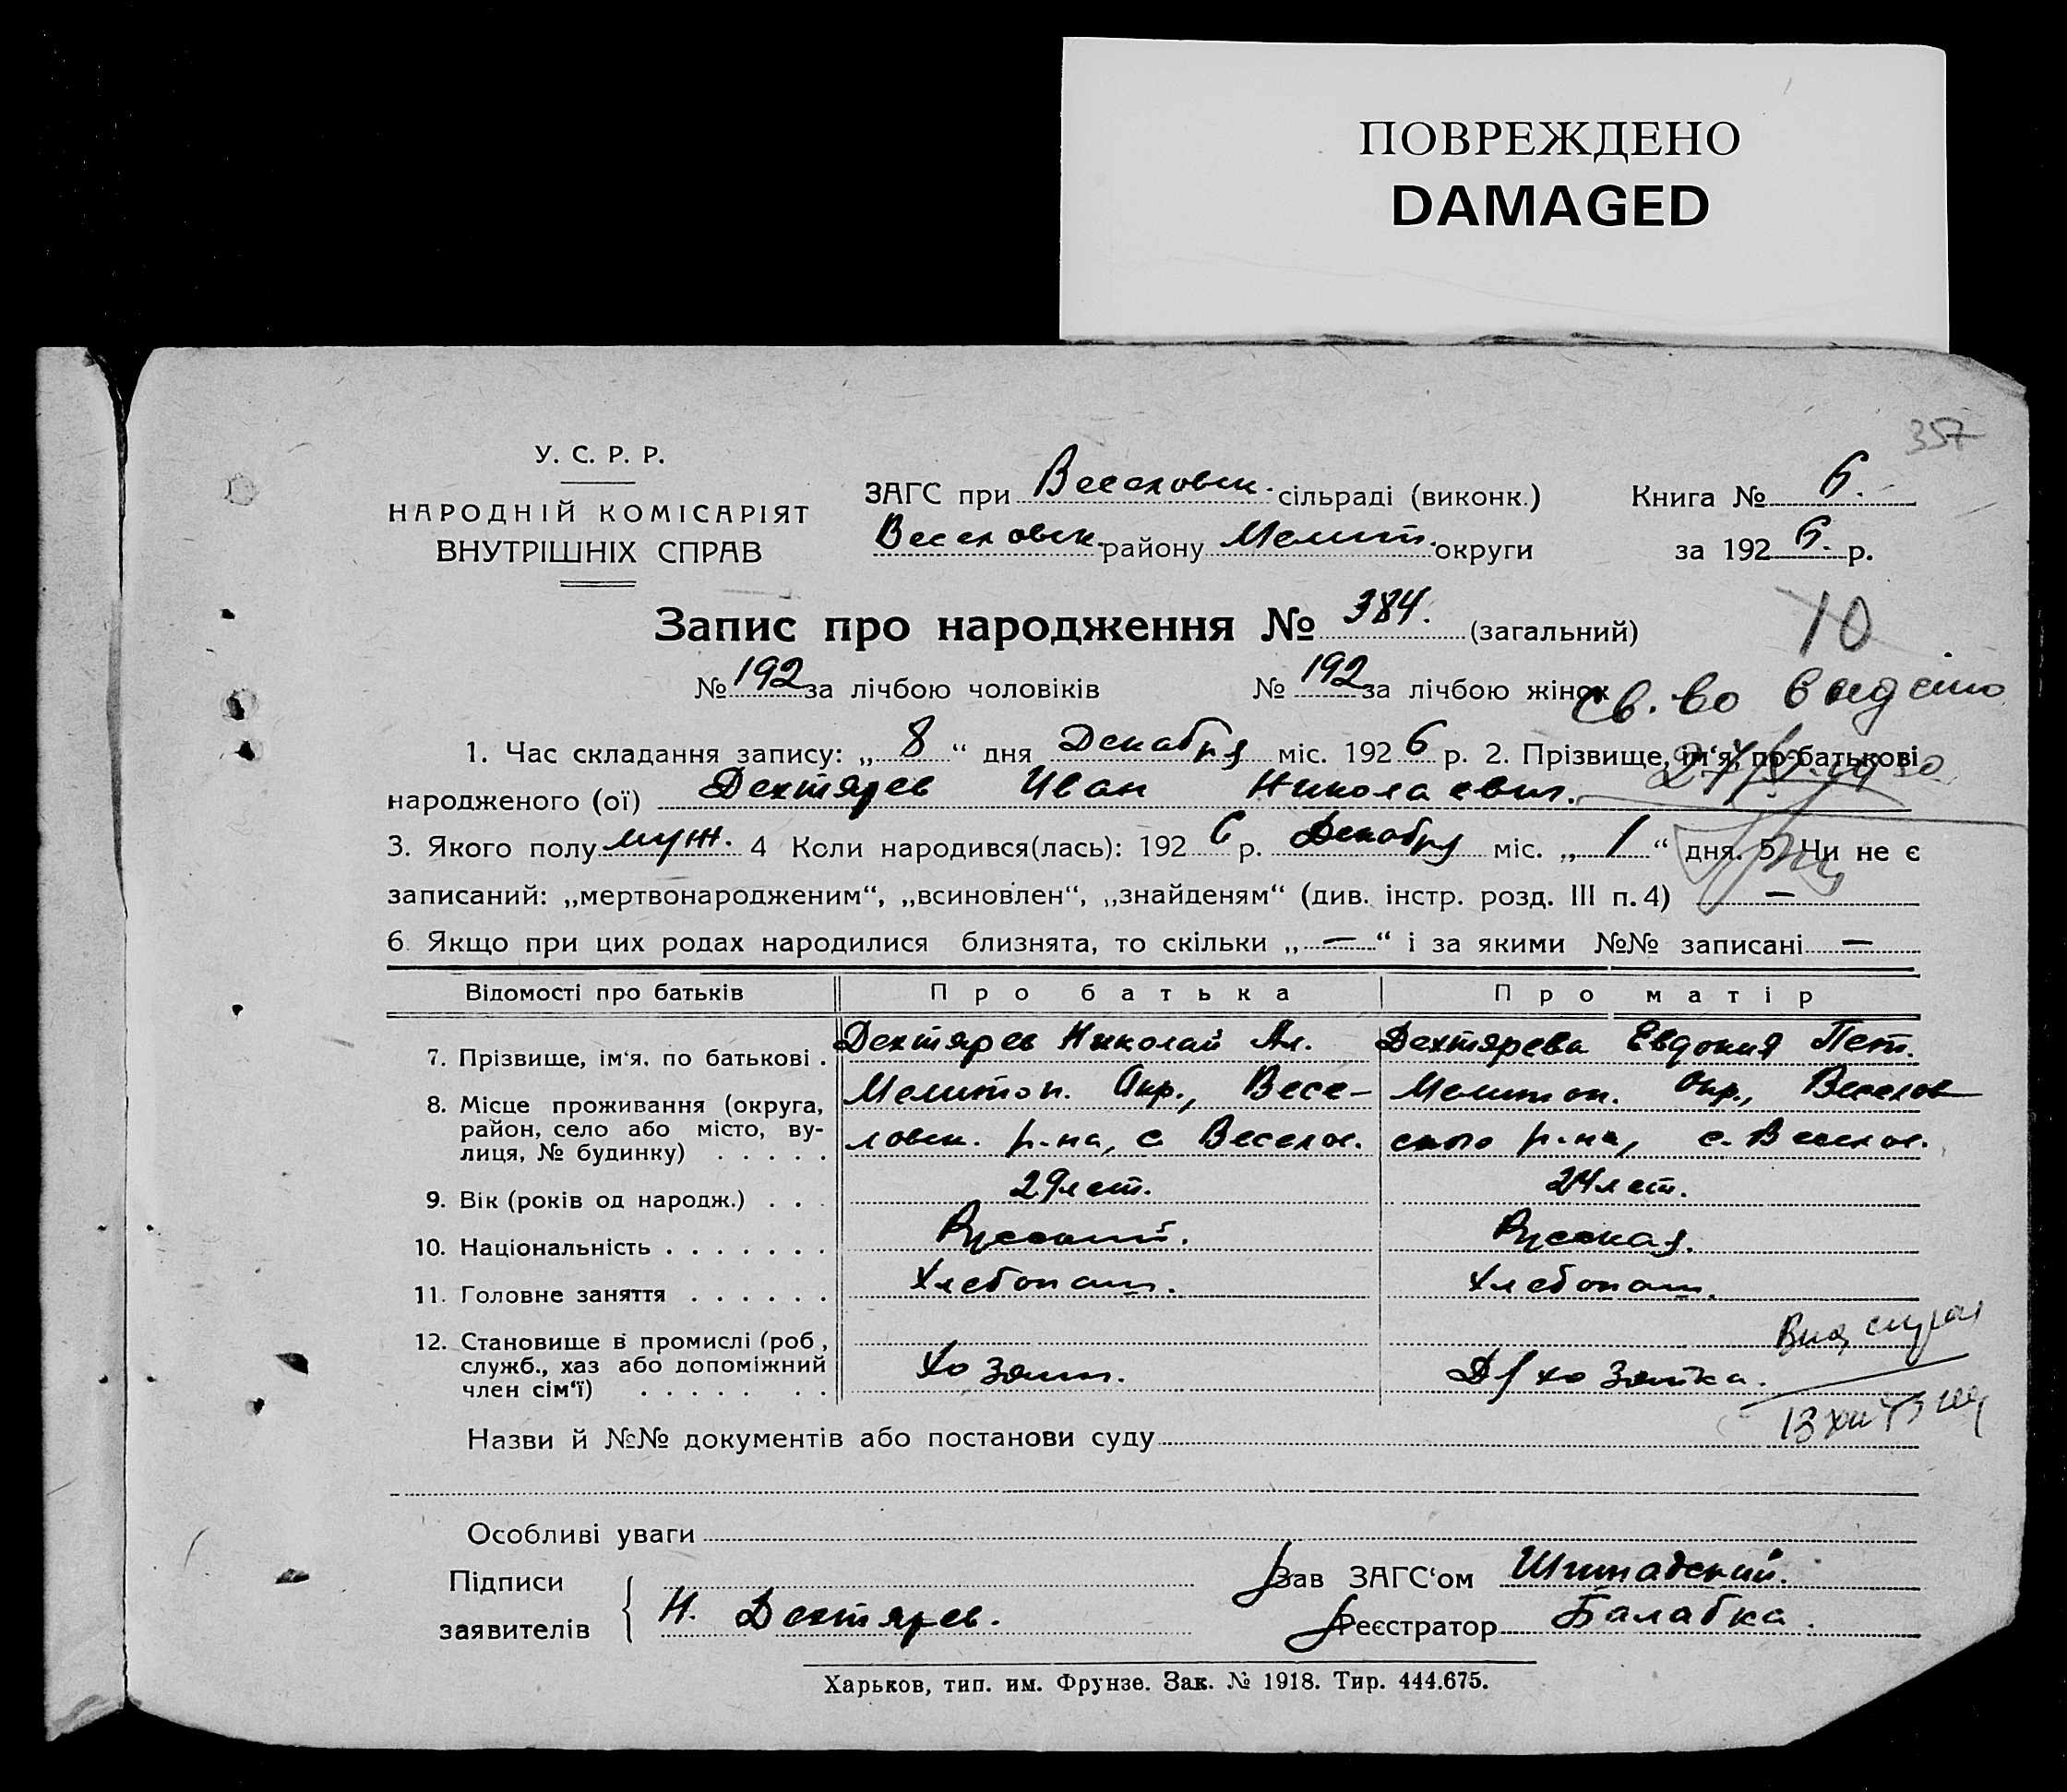 ПОВРЕЖДЕНО
DAMAGED
357
У. С. Р. Р.
НАРОДНІЙ КОМІСАРІЯТ
ВНУТРІШНІХ СПРАВ
ЗАГС при Веселовск. сільраді (виконк.)
Книга № 6.
Веселовск. району Мелит. округи
за 1926. р.
Запис про народження № 384. (загальний)
10
№ 192 за лічбою чоловіків № 192 за лічбою жінок
Св.-во видано
1. Час складання запису: „ 8 “ дня Декабря міс. 1926 р. 2. Прізвище, ім‘я, по-батькові
народженого (ої) Дехтярев Иван Николаевич.
3. Якого полу муж. 4 Коли народився(лась): 1926 р. Декабря міс. „ 1 “ дня. 5. Чи не є
записаний: „мертвонародженим“, „всиновлен“, „знайденям“ (див. інстр. розд. III п. 4) —
6. Якщо при цих родах народилися близнята, то скільки „ — “ і за якими №№ записані —
Відомості про батьків
Про батька
Про матір
7. Прізвище, ім‘я, по батькові .
Дехтярев Николай Ал.
Дехтярева Евдокия Пет.
8. Місце проживання (округа,
район, село або місто, ву-
лиця, № будинку) . . . . .
Мелитоп. Окр., Весе-
ловск. р-на, с. Веселое.
Мелитоп. Окр., Веселов
ского р-на, с. Веселое.
9. Вік (років од народж.) . . .
29 лет.
24 лет.
10. Національність . . . . . . .
Русский.
Русская.
11. Головне заняття . . . . . .
Хлебопаш.
Хлебопаш.
12. Становище в промислі (роб.,
служб., хаз або допоміжний
член сім‘ї) . . . . . . .
Хозяин.
Д/хозяйка.
Назви й №№ документів або постанови суду
Особливі уваги
Підписи
заявителів
Н. Дехтярев.
Зав ЗАГС‘ом
Реєстратор Балабка.
Харьков, тип. им. Фрунзе. Зак. № 1918. Тир. 444.675.